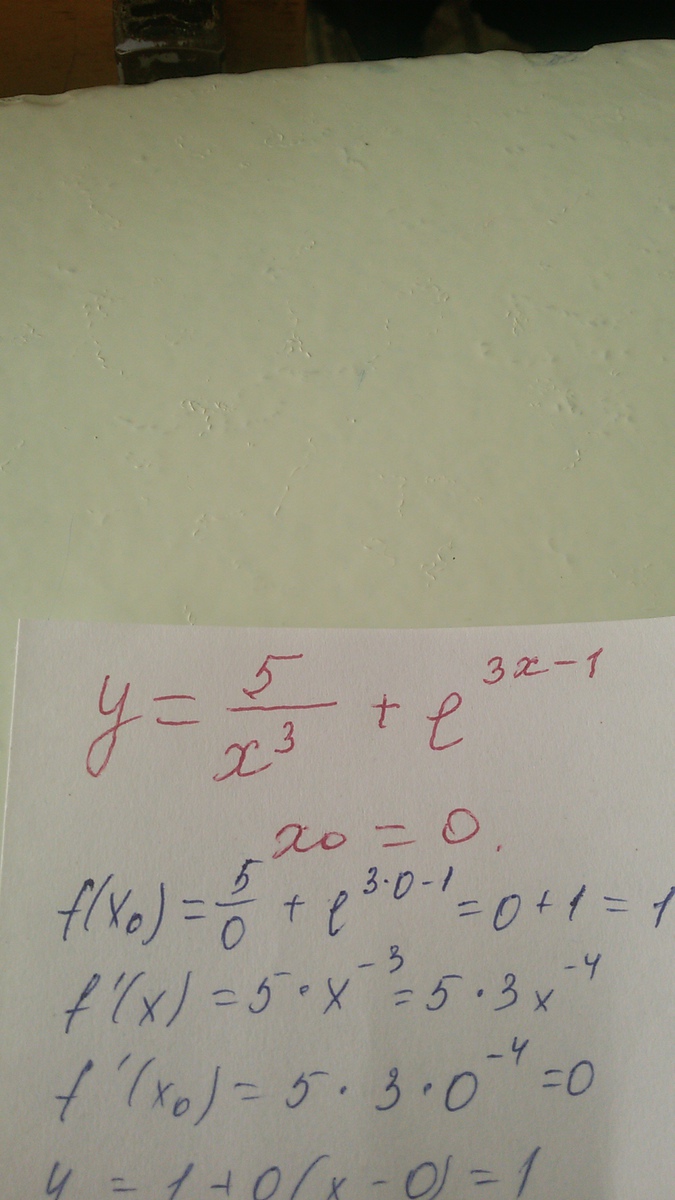 y = 5/x³ + e^(3x-1)
x₀ = 0.
f(x₀) = 5/0 + e^(3·0-1) = 0 + 1 = 1
f'(x) = 5·x⁻³ = 5·3x⁻⁴
f'(x₀) = 5·3·0⁻⁴ = 0
y = 1 + 0(x - 0) = 1